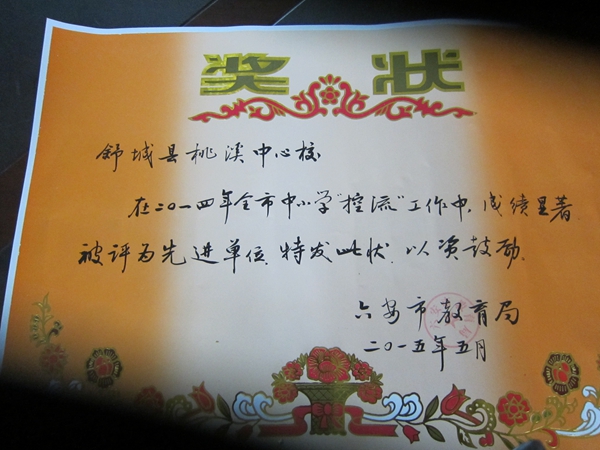 奖状
舒城县桃溪中心校
在二〇一四年全市中小学"控流"工作中,成绩显著
被评为先进单位,特发此状,以资鼓励.
六安市教育局
二〇一五年五月